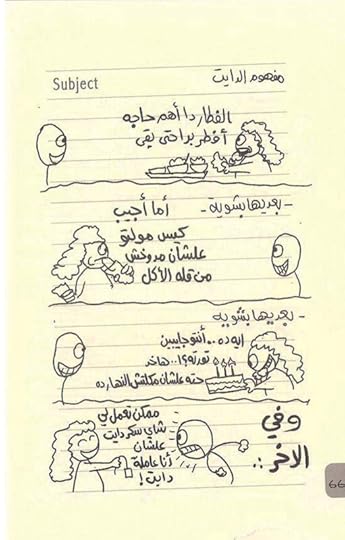 مفهوم الدايت
Subject
الفطار دا أهم حاجه
أفطر براحتى بقى
- بعديها بشويه -
أما أجيب
كيس مولتو
علشان مدوخش
من قله الأكل
- بعديها بشويه
ايه ده .. أنتو جايبين
تورته ؟! .. هاخد
حته علشان مكلتش النهارده
وفي
الآخر :.
ممكن تعمل لي
شاي سكر دايت
علشان
أنا عاملة
دايت !
66